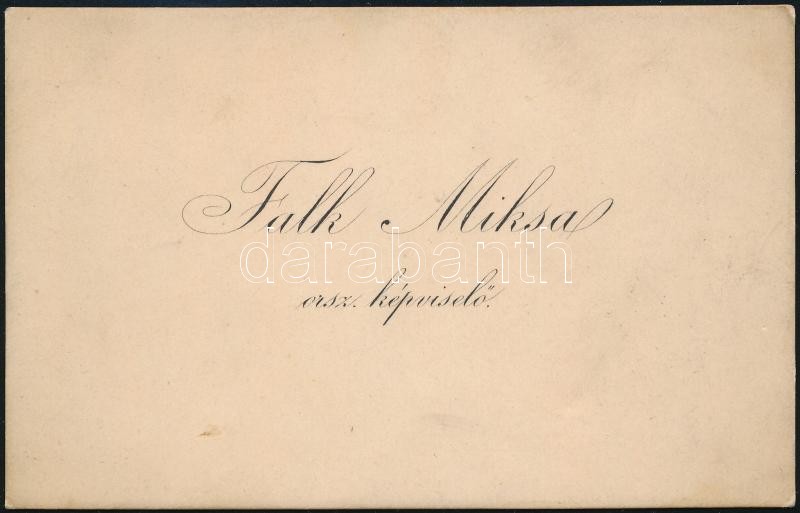 Falk Miksa
darabanth
orsz. képviselő.
darabanth